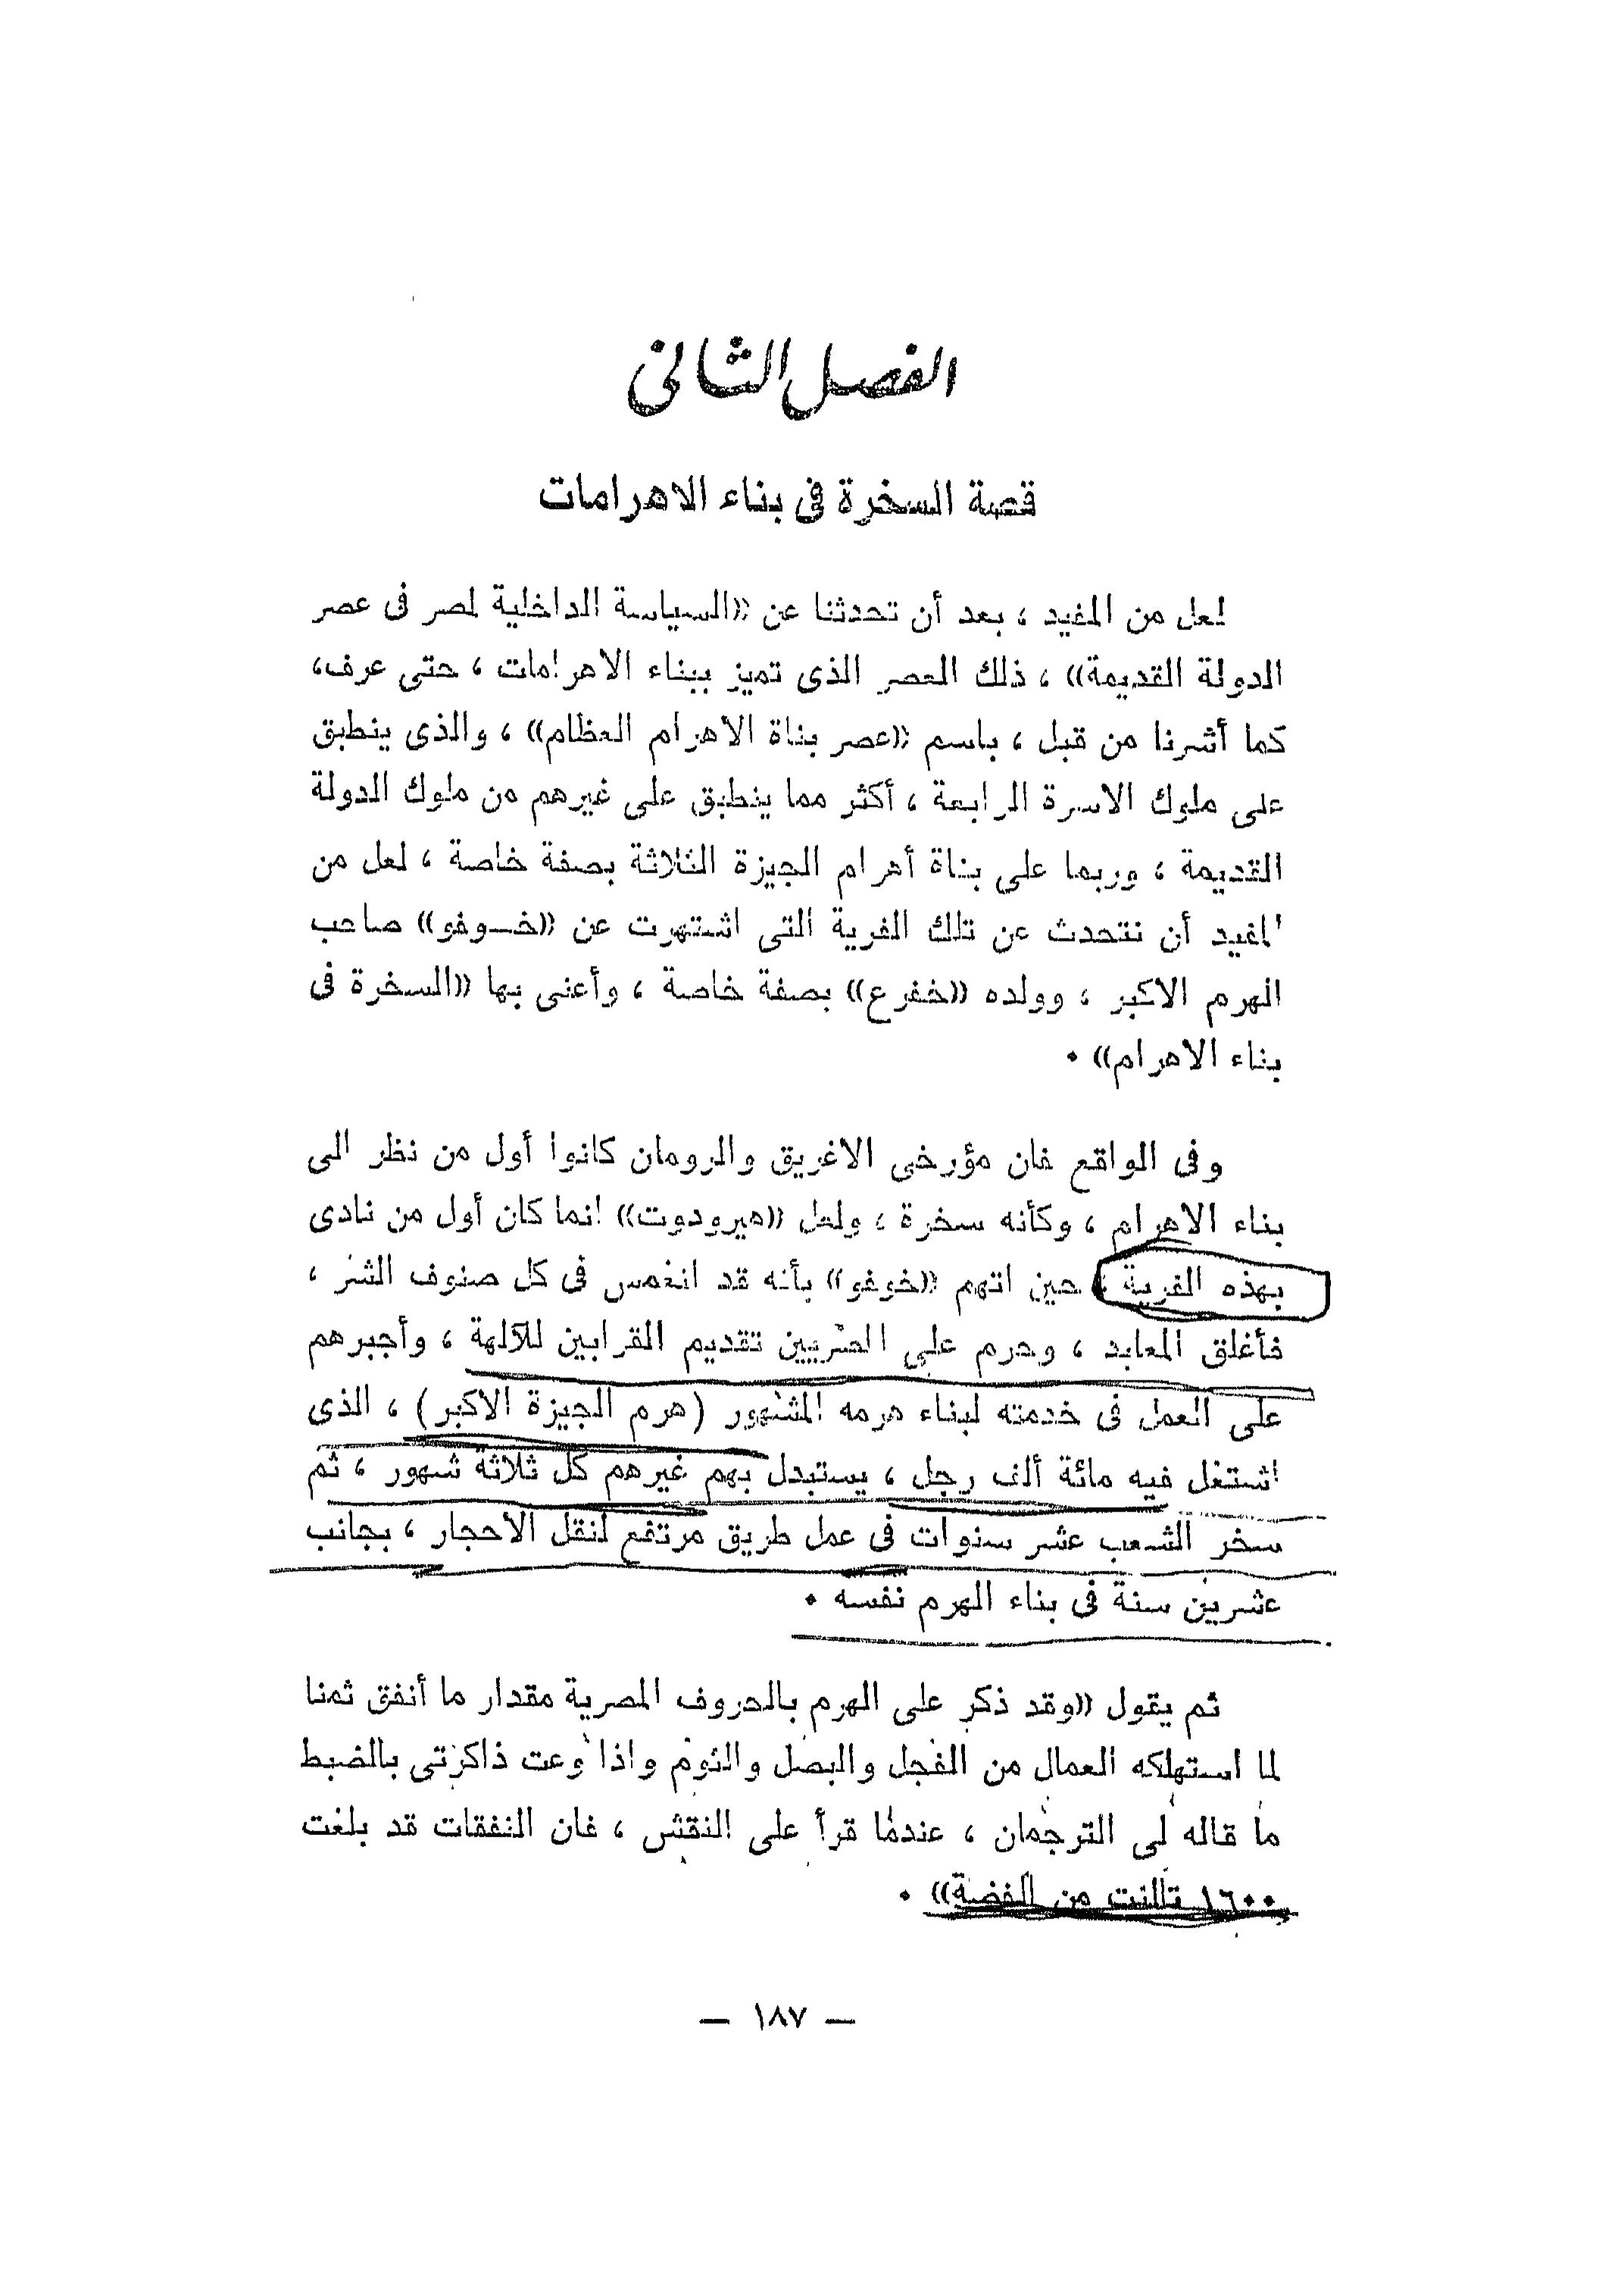 الفصل الثانى
قصة السخرة فى بناء الاهرامات
لعل من المفيد ، بعد أن تحدثنا عن «السياسة الداخلية لمصر فى عصر
الدولة القديمة» ، ذلك العصر الذى تميز ببناء الاهرامات ، حتى عرف،
كما أشرنا من قبل ، باسم «عصر بناة الاهرام العظام» ، والذى ينطبق
على ملوك الاسرة الرابعة ، أكثر مما ينطبق على غيرهم من ملوك الدولة
القديمة ، وربما على بناة أهرام الجيزة الثلاثة بصفة خاصة ، لعل من
المفيد أن نتحدث عن تلك الفرية التى اشتهرت عن «خـوفو» صاحب
الهرم الاكبر ، وولده «خفرع» بصفة خاصة ، وأعنى بها «السخرة فى
بناء الاهرام» •
وفى الواقع فان مؤرخى الاغريق والرومان كانوا أول من نظر الى
بناء الاهرام ، وكأنه سخرة ، ولعل «هيرودوت» انما كان أول من نادى
بهذه الفرية ، حين اتهم «خوفو» بأنه قد انغمس فى كل صنوف الشر ،
فأغلق المعابد ، وحرم على المصريين تقديم القرابين للآلهة ، وأجبرهم
على العمل فى خدمته لبناء هرمه المشهور (هرم الجيزة الاكبر) ، الذى
اشتغل فيه مائة ألف رجل ، يستبدل بهم غيرهم كل ثلاثة شهور ، ثم
سخر الشعب عشر سنوات فى عمل طريق مرتفع لنقل الاحجار ، بجانب
عشرين سنة فى بناء الهرم نفسه •
ثم يقول «وقد ذكر على الهرم بالحروف المصرية مقدار ما أنفق ثمنا
لما استهلكه العمال من الفجل والبصل والثوم واذا وعت ذاكرتى بالضبط
ما قاله لى الترجمان ، عندما قرأ على النقش ، فان النفقات قد بلغت
١٦٠٠ تالنت من الفضة» •
— ١٨٧ —